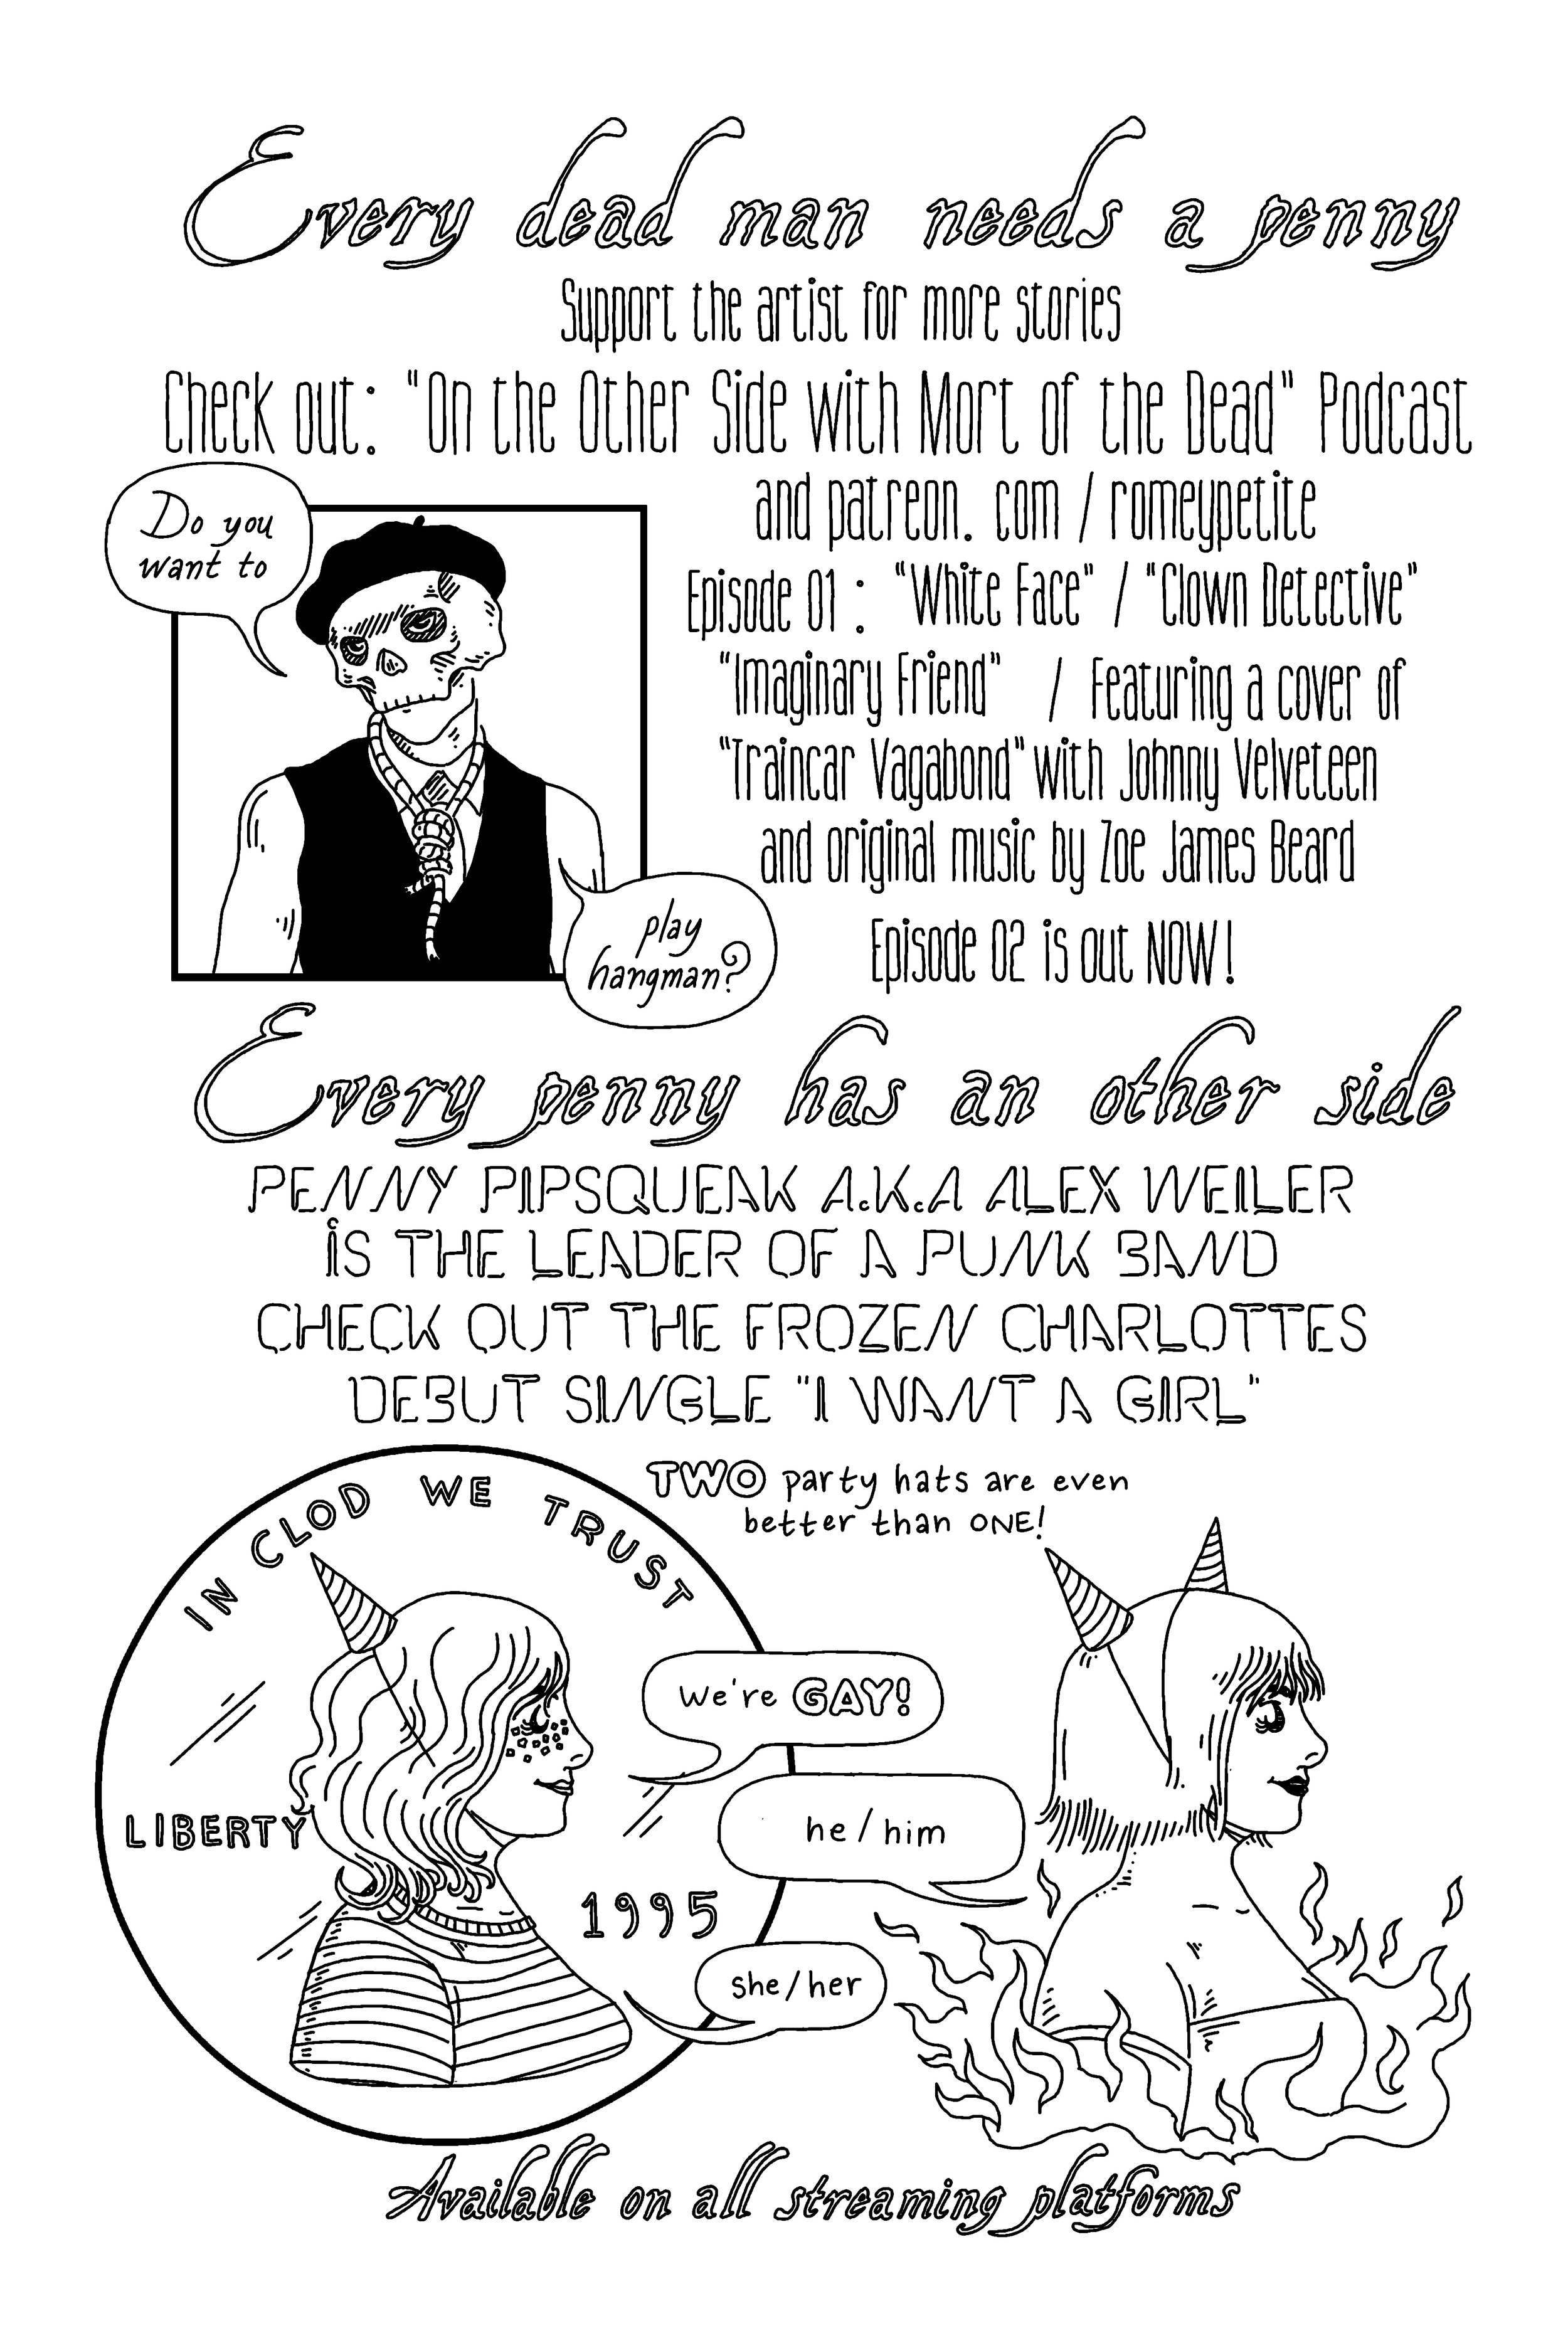 Every dead man needs a penny
Support the artist for more stories
Check out: "On the Other Side with Mort of the Dead" Podcast
and patreon. com / romeypetite
Do you
want to
Episode 01 : "White Face" / "Clown Detective"
"Imaginary Friend" / Featuring a cover of
"Traincar Vagabond" with Johnny Velveteen
and original music by Zoe James Beard
play
hangman?
Episode 02 is out NOW!
Every penny has an other side
PENNY PIPSQUEAK A.K.A ALEX WEILER
iS THE LEADER OF A PUNK BAND
CHECK OUT THE FROZEN CHARLOTTES
DEBUT SINGLE "I WANT A GIRL"
TWO party hats are even
better than ONE!
IN CLOD WE TRUST
we're GAY!
LIBERTY
he/him
1995
she/her
Available on all streaming platforms